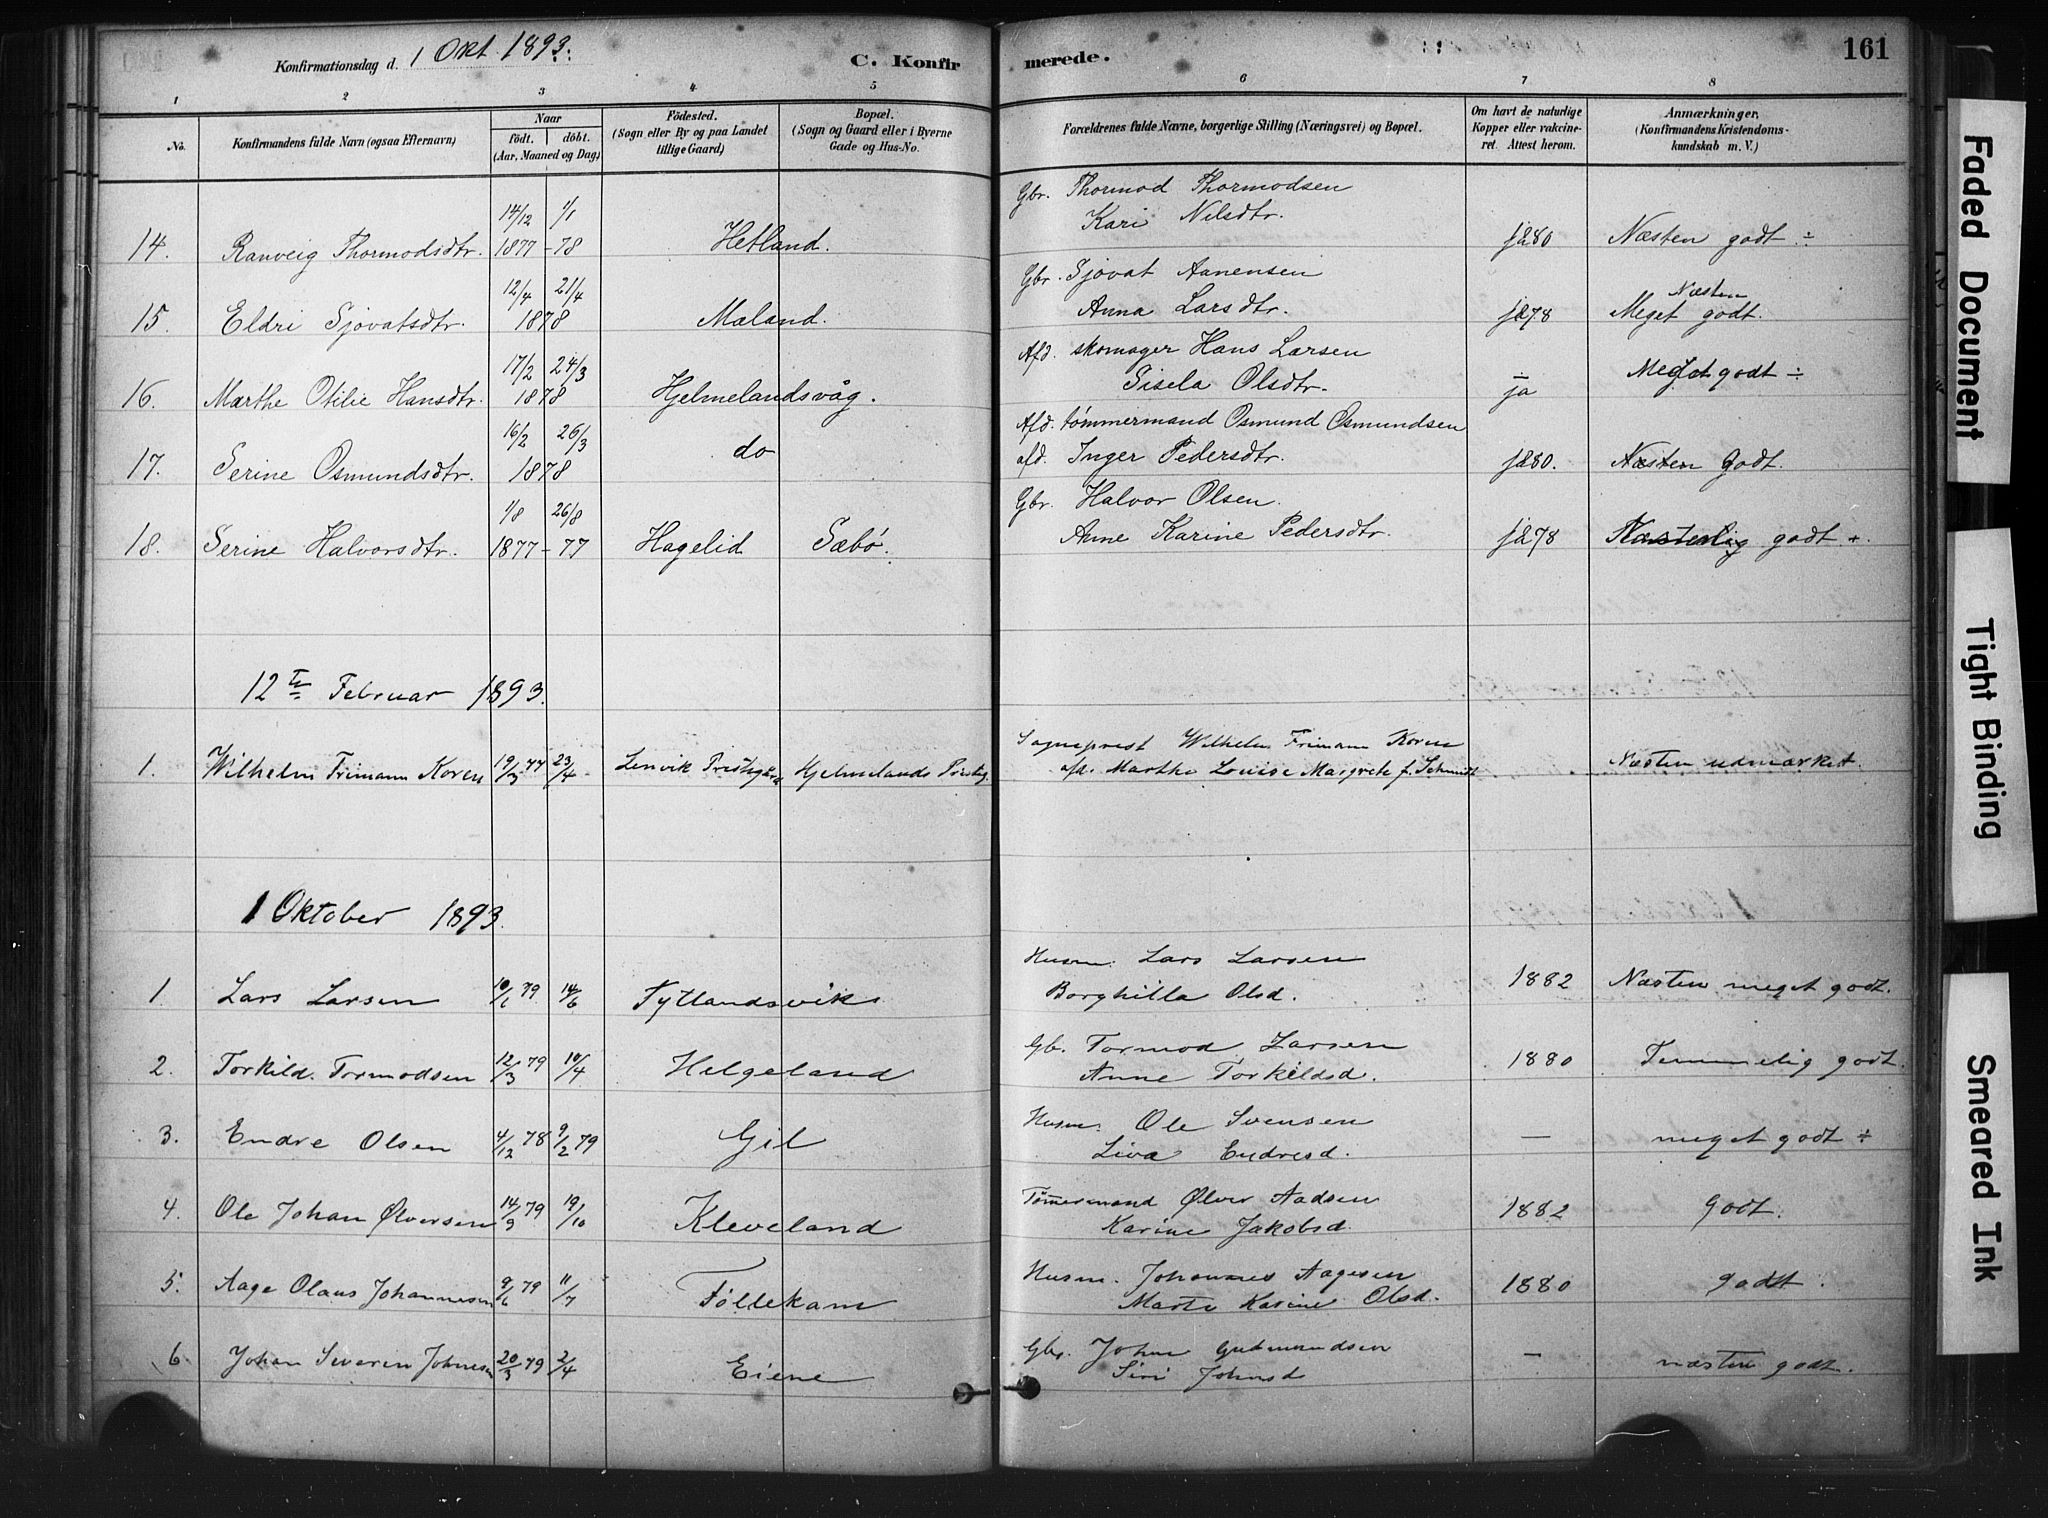 Konfirmationsdag d. 1 Okt. 1893. C. Konfirmerede. 161
1 2 3 4 5 6 7 8
No. Konfirmandens fulde Navn (ogsaa Efternavn) Naar født. døbt. (Aar, Maaned og Dag) Fødested. (Sogn eller By og paa Landet tillige Gaard) Bopæl. (Sogn og Gaard eller i Byerne Gade og Hus-No. Forældrenes fulde Navne, borgerlige Stilling (Næringsvei) og Bopæl. Om havt de naturlige Kopper eller vakcineret. Attest herom. Anmærkninger. (Konfirmandens Kristendomskundskab m. V.)
14. Ranveig Thormodsdtr. 14/12 1877 1/1 -78 Hetland. Gbr. Thormod Thormodsen
Kari Nilsdtr. ja 80 Næsten godt ÷
15. Eldri Sjovatsdtr. 12/4 21/4 1878 Mæland. Gbr. Sjovat Aanensen
Anna Larsdtr. ja 78 Næsten Meget godt.
16. Marthe Otilie Hansdtr. 17/2 24/3 1878 Hjelmelandsvåg. Afd. skomager Hans Larsen
Sisela Olsdtr. ja Meget godt ÷
17. Serine Osmundsdtr. 16/2 26/3 1878 do Afd. tømmermand Osmund Osmundsen
afd. Inger Pedersdtr. ja 80. Næsten Godt.
18. Serine Halvorsdtr. 1/8 1877 26/8 -77 Hagelid Sæbø. Gbr. Halvor Olsen.
Anne Karine Pedersdtr. ja 78 godt +.
12te Februar 1893.
1. Wilhelm Frimann Koren 19/3 77 23/4 Lenvik Prestegaard Hjelmelands Prestg. Sogneprest Wilhelm Frimann Koren
afd. Marthe Louise Margrete f. Schmidt Næsten udmærket.
1 Oktober 1893.
1. Lars Larsen 10/1 79. 14/6 Tytlandsvik Husm. Lars Larsen
Borghilla Olsd. 1882 Næsten meget godt.
2. Torkild Tormodsen 12/3 79 10/4 Helgeland Gb. Tormod Larsen
Anne Torkildsd. 1880 Temmelig godt.
3. Endre Olsen 4/12 78 9/2 79 Gil Husm. Ole Svensen
Liva Endresd. — meget godt ÷
4. Ole Johan Ølversen 14/9 79 19/10 Kleveland Tømmermand Ølver Aadsen
Karine Jakobsd. 1882 Godt.
5. Aage Olaus Johannesen 9/6 79 11/7 Følleskam Husm. Johannes Aagesen
Marta Karine Olsd. 1880 godt.
6. Johan Severin Johnsen 20/3 79 2/4 Eiene Gbr. John Gudmundsen
Siri Johnsd — næsten godt.
Faded Document
Tight Binding
Smeared Ink